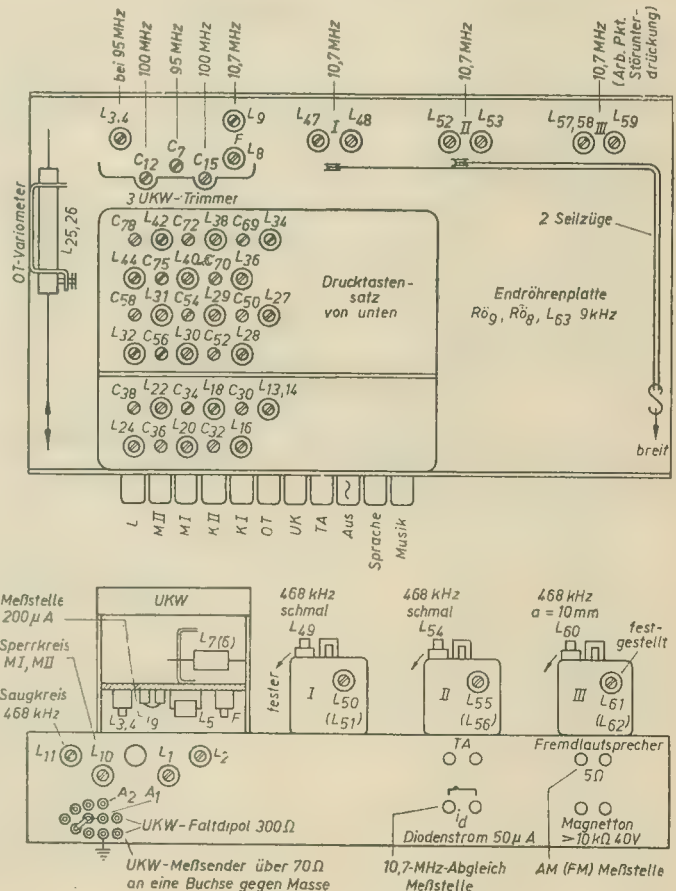 bei 95 MHz
100 MHz
95 MHz
100 MHz
10,7 MHz
10,7 MHz
10,7 MHz
10,7 MHz
(Arb. Pkt.
Störunter-
drückung)
L3.4
C12
C7
C15
L9
F
L8
L47 I L48
L52 II L53
L57,58 III L59
3 UKW-Trimmer
OT-Variometer
L25,26
2 Seilzüge
C78 L42 C72 L38 C69 L34
L44 C75 L40 C70 L36
C58 L31 C54 L29 C50 L27
L32 C56 L30 C52 L28
C38 L22 C34 L18 C30 L13,14
L24 C36 L20 C32 L16
Drucktasten-
satz
von unten
Endröhrenplatte
Rö9, Rö8, L63 9kHz
breit
L
M II
M I
K II
K I
OT
UK
TA
Aus
Sprache
Musik
Meßstelle
200 µA
Sperrkreis
M I, M II
Saugkreis
468 kHz
UKW
L7(6)
L3,4
L5
F
468 kHz
schmal
L49
fester
I
L50
(L51)
468 kHz
schmal
L54
II
L55
(L56)
468 kHz
a = 10mm
L60
fest-
gestellt
III
L61
(L62)
L11
L10
L1
L2
A2 A1
UKW-Faltdipol 300 Ω
UKW-Meßsender über 70 Ω
an eine Buchse gegen Masse
TA
id
Diodenstrom 50 µA
10,7-MHz-Abgleich
Meßstelle
Fremdlautsprecher
5 Ω
Magnetton
>10 kΩ 40V
AM (FM) Meßstelle